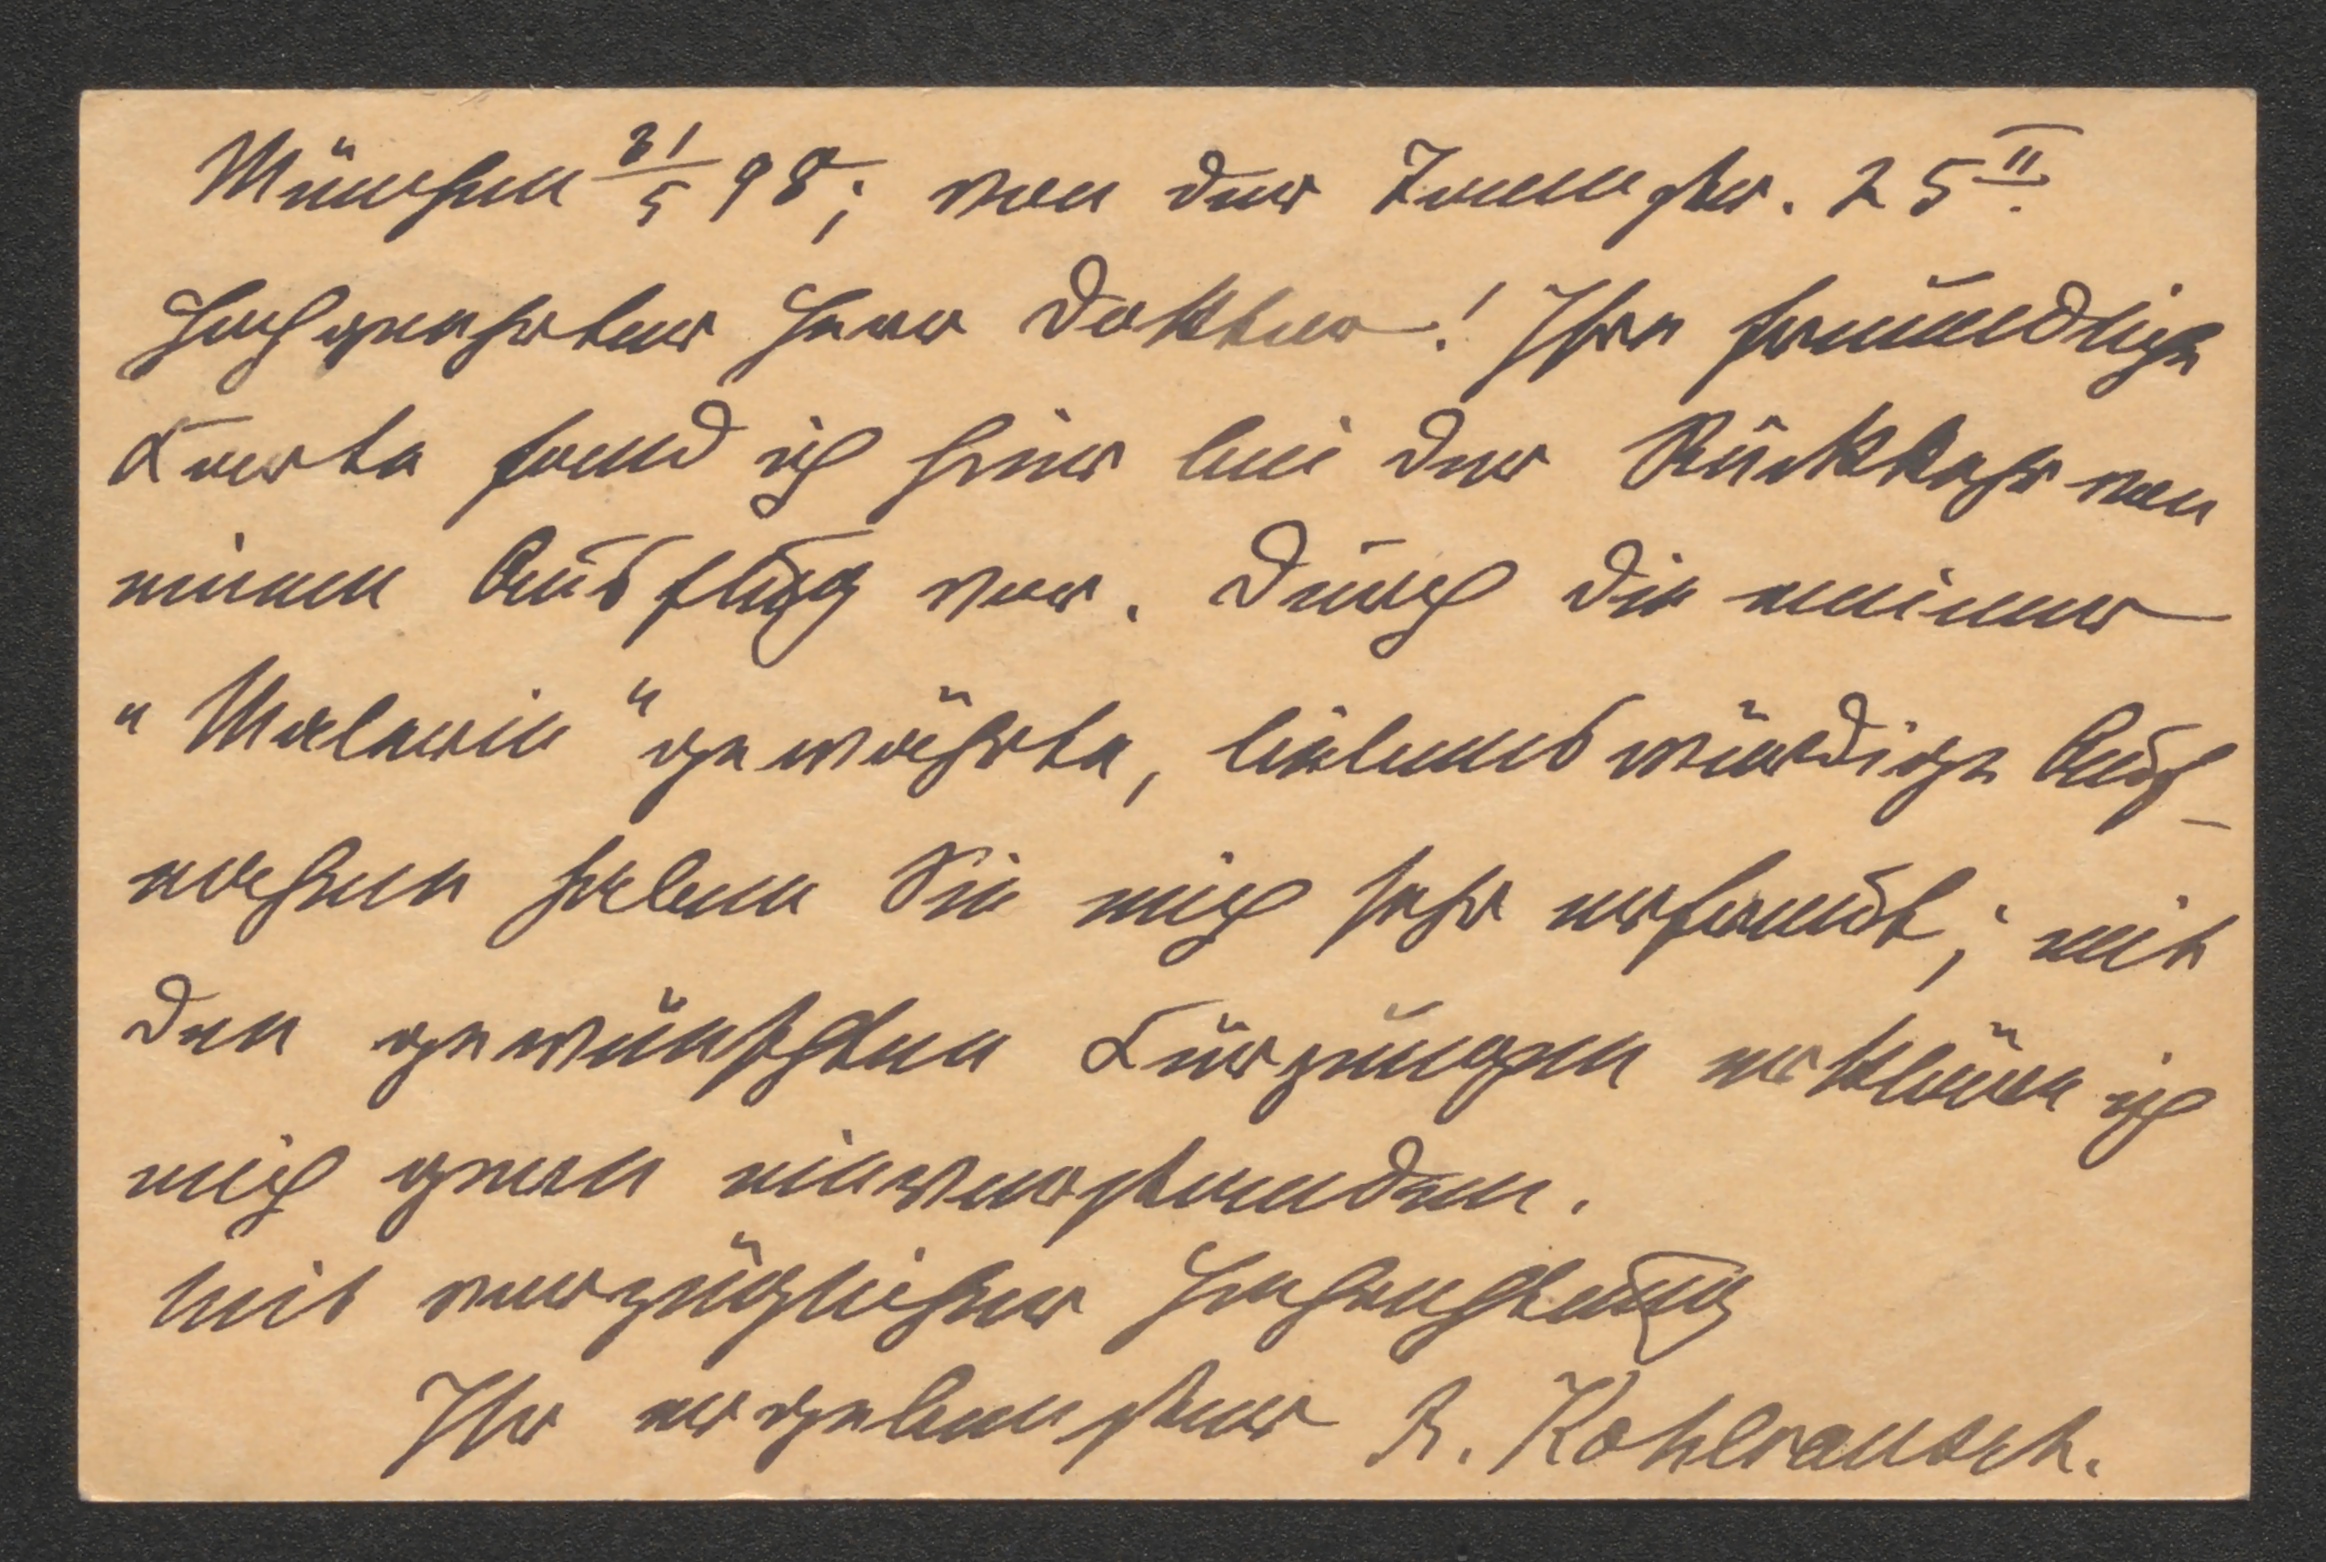 München 31/5 98; von der Tannstr. 25 II.
Hochgeehrter Herr Doktor! Ihre freundliche
Karte fand ich hier bei der Rückkehr von
einem Ausflug vor. Durch die meiner
"Malerin" gewährte, liebenswürdige Auf-
nahme haben Sie mich sehr erfreut; mit
den gewünschten Kürzungen erkläre ich
mich gern einverstanden.
Mit vorzüglicher Hochachtung
Ihr ergebenster R. Kohlrausch.